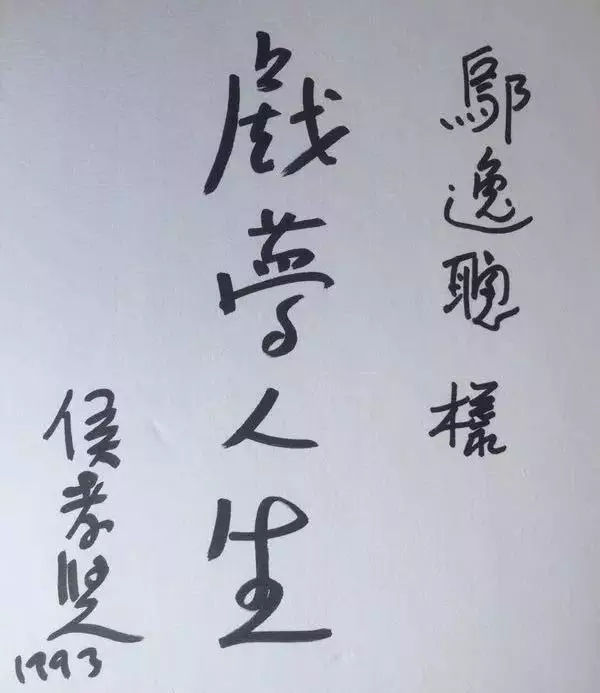 鄔逸聰 樣
戲夢人生
侯孝賢
1993